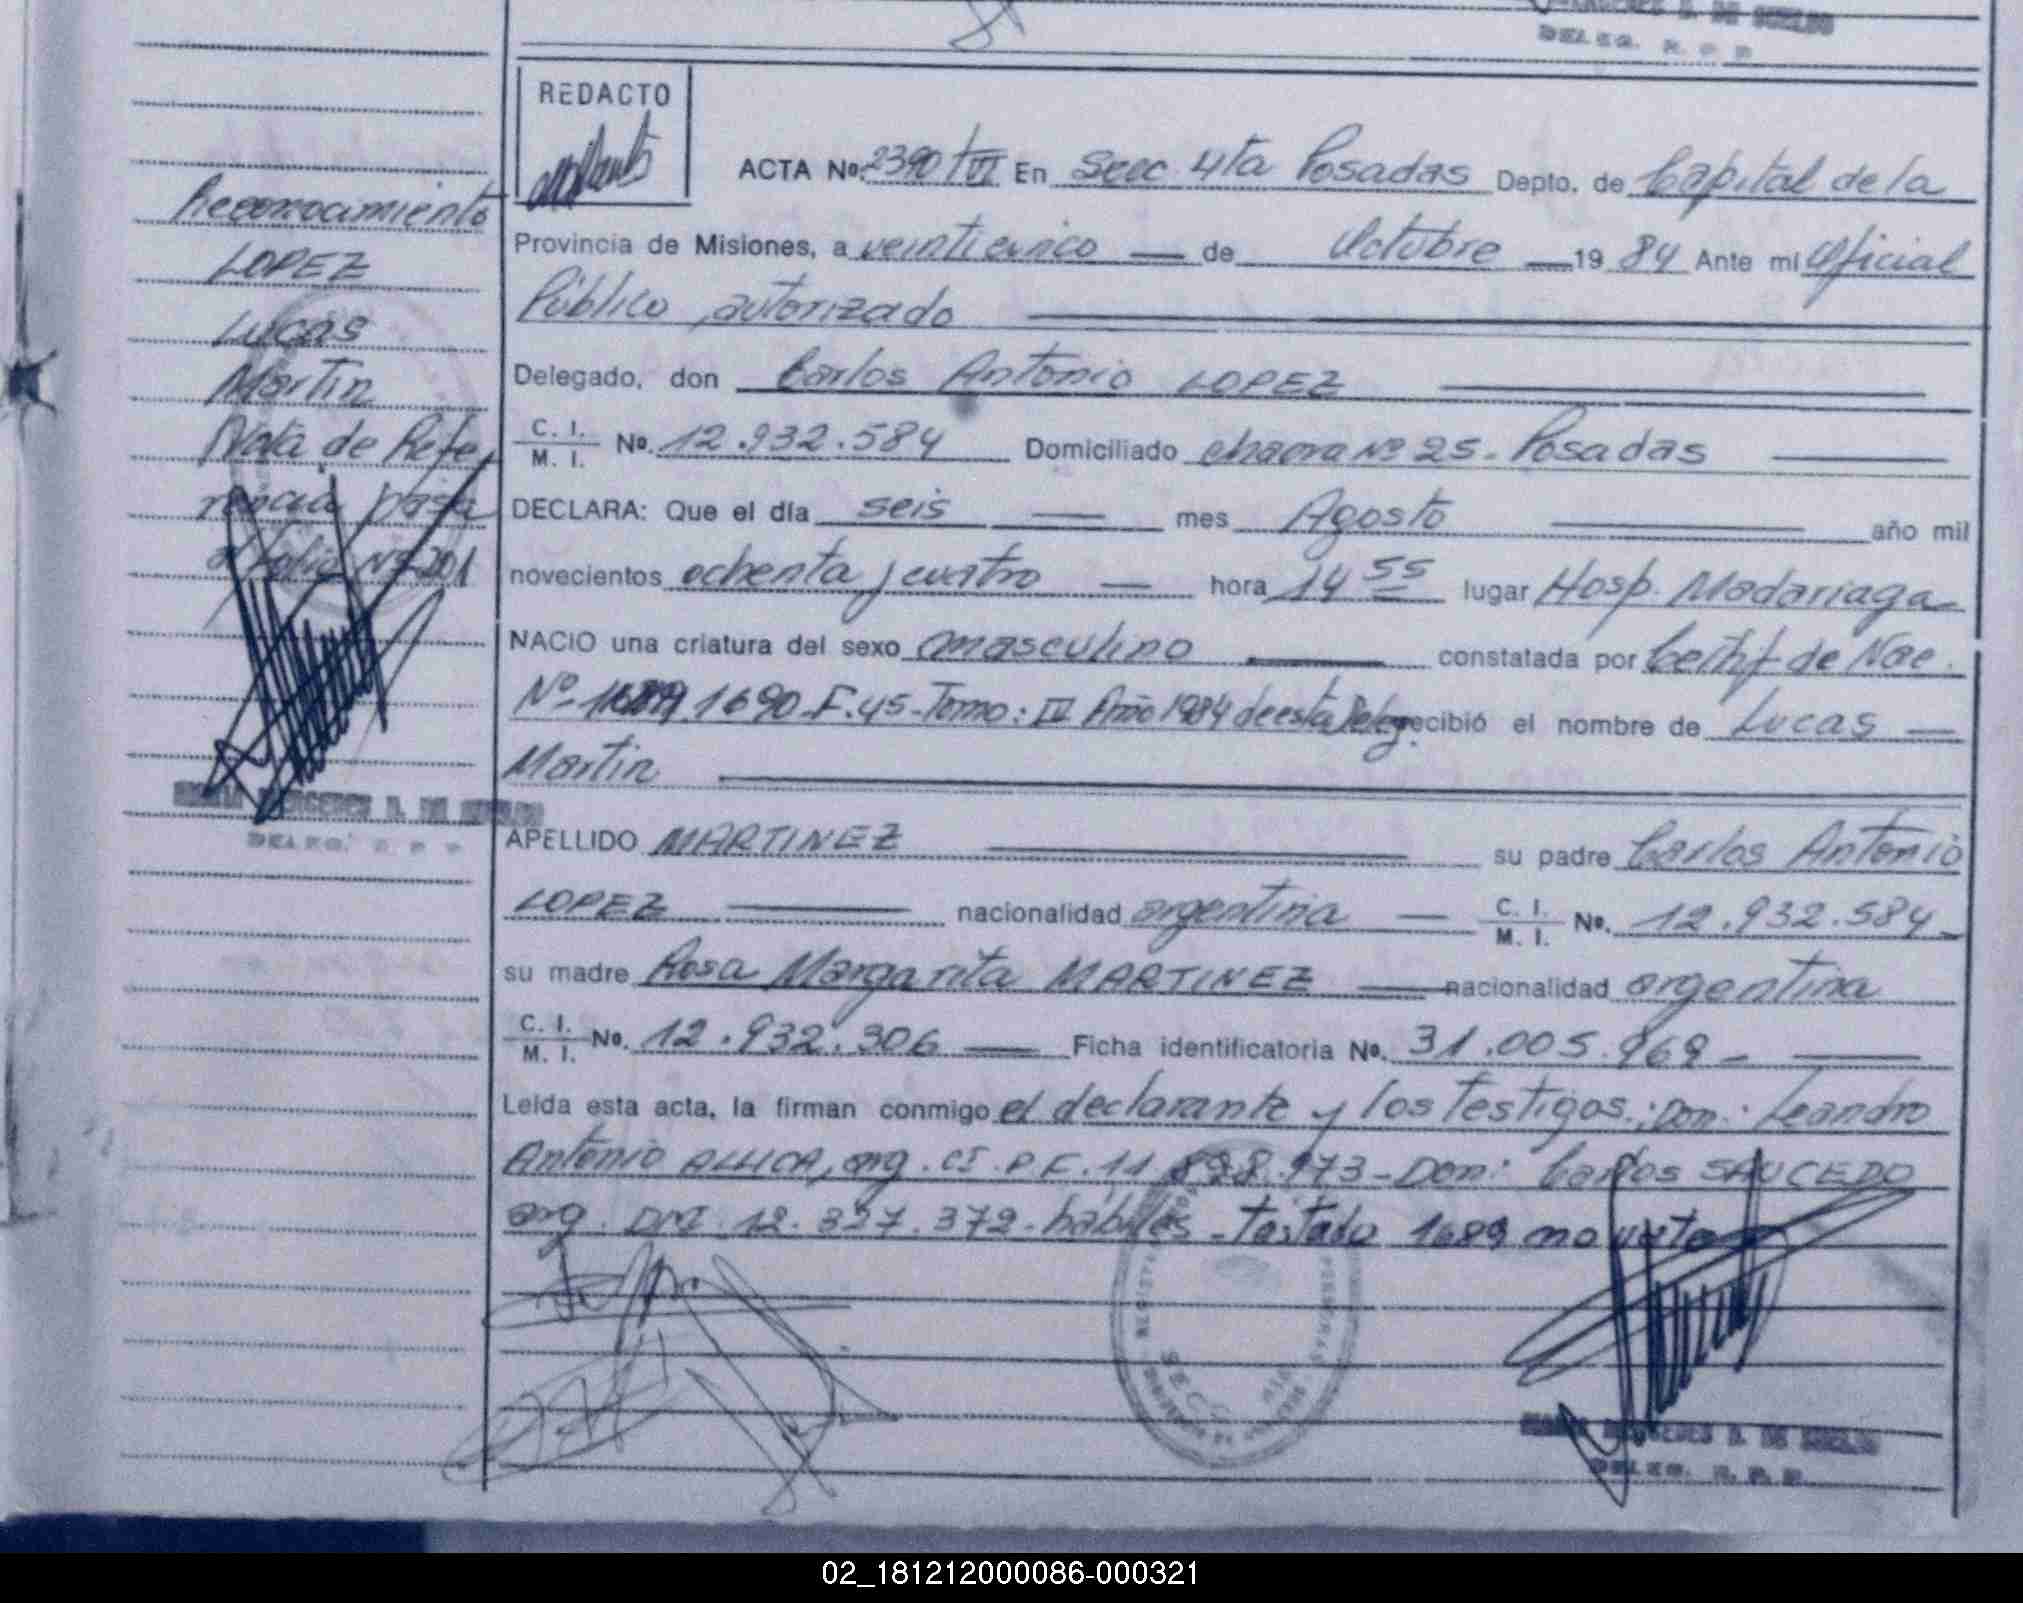 DELEG. R. P. P.
REDACTO
ACTA Nº 2390/VI En Secc 4ta Posadas Depto. de Capital de la
Provincia de Misiones, a veinticinco de Octubre 1984 Ante mi Oficial
Público autorizado
Delegado, don Carlos Antonio LOPEZ
C. I. / M. I. Nº. 12.932.584 Domiciliado chacra Nº 25 - Posadas
DECLARA: Que el día seis mes Agosto año mil
novecientos ochenta y cuatro hora 14 55 lugar Hosp. Madariaga
NACIO una criatura del sexo masculino constatada por Certif de Nac.
Nº 1689 1690 F. 45 - Tomo: IV Año 1984 de esta Deleg. recibió el nombre de Lucas
Martin
APELLIDO MARTINEZ su padre Carlos Antonio
LOPEZ nacionalidad argentina C. I. / M. I. Nº. 12.932.584
su madre Rosa Margarita MARTINEZ nacionalidad argentina
C. I. / M. I. Nº. 12.932.306 Ficha identificatoria Nº. 31.005.969
Leída esta acta, la firman conmigo el declarante y los testigos: Don: Leandro
Antonio arg. CI. P.F. 11.898.173 - Don: Carlos SAUCEDO
arg. DNI. 12.327.372 - hábiles - Testado 1689 no
Reconocimiento
LOPEZ
Lucas
Martin
Nota de Refe
rencia pasa
al folio Nº 201
MERCEDES D. DE
DELEG. R. P. P.
MERCEDES D. DE
DELEG. R. P. P.
02_181212000086-000321